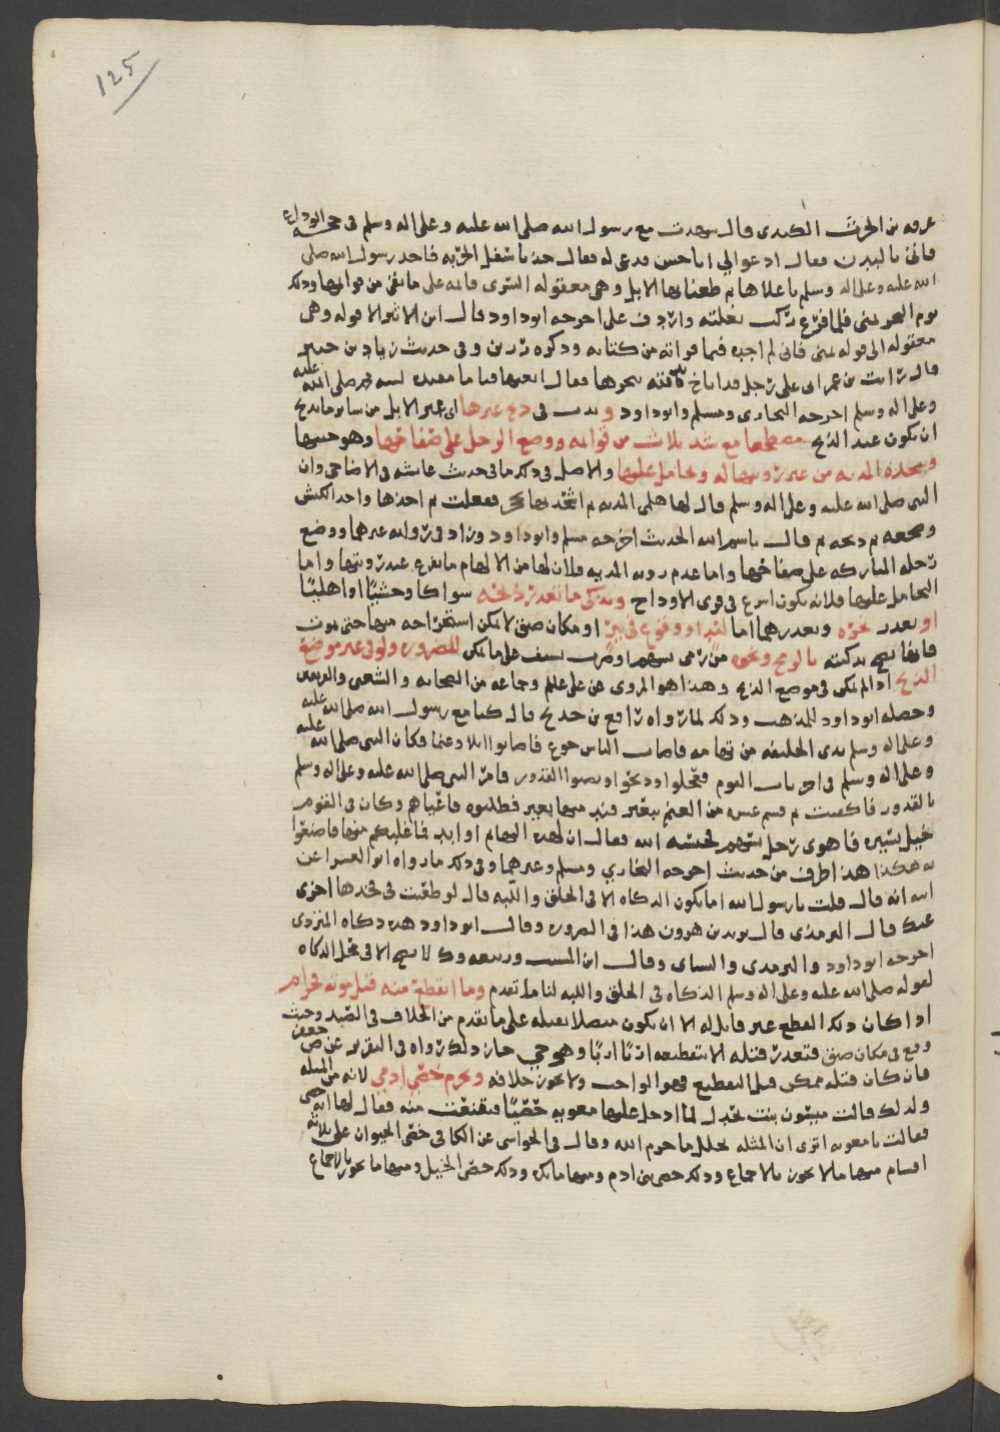 125
عرفه بن الحرث الكندى قال شهدت مع رسول الله صلى الله عليه وعلى اله وسلم فى حجه الوداع
فاتى بالبدن فقال ادعو الي ابا حسن فدعى له فقال خذ باسفل الحربه فاخذ رسول الله صلى
الله عليه وعلى اله وسلم باعلاها ثم طعنا بها الابل وهى معقوله اليسرى قايمه على ما بقى من قوايمها وذلك
يوم النحر بمنى فلما فرغ ركب بغلته واردف على اخرجه ابو داود قال ابن الاثير الا قوله وهى
معقوله الى قوله بمنى فانى لم اجده فيما قراته من كتابه وذكره رزين وفى حديث زياد بن جبير
قال رايت بن عمر اتى على رجل قد اناخ بدنته ينحرها فقال ابعثها قياما مقيده سنه محمد صلى الله عليه
وعلى اله وسلم اخرجه البخارى ومسلم وابو داود وندب فى ذبح غيرها اى غير الابل من ساير ما يذبح
ان يكون عند الذبح مضطجعا مع شد ثلاث من قوايمه ووضع الرجل على صفاحها وهو جنبها
وبحده المديه من غير رويتها له وتحامل عليها والاصل فى ذلك ما فى حديث عايشه فى الاضاحى وان
النبى صلى الله عليه وعلى اله وسلم قال لها هلمى المديه ثم اشحذيها بحجر ففعلت ثم اخذها واخذ الكبش
وضجعه ثم ذبحه ثم قال باسم الله الحديث اخرجه مسلم وابو داود وزاد فى روايه غيرهما ووضع
رجله المباركه على صفاحها واما عدم رويه المديه فلان لها من الالهام ما يفزع عند رويتها واما
التحامل عليها فلانه يكون اسرع فى فرى الاوداج ويذكى ما تعذر ذبحه سوا كا وحشيا او اهليا
او تعذر نحره وتعذرهما اما لند او وقوع فى بير او مكان ضيق لا يمكن استخراجه منها حتى يموت
فانها تصح تذكيته بالرمح ونحوه من رمى بسهم او ضرب بسيف على ما يمكن للضروره ولو فى غير موضع
الذبح اذا لم يمكن فى موضع الذبح وهذا هو المروى عن على علم وجماعه من الصحابه والشعبى
وحصله ابو داود للمذهب وذلك لما رواه رافع بن خديج قال كنا مع رسول الله صلى الله عليه
وعلى اله وسلم بذى الحليفه من تهامه فاصاب الناس جوع فاصابوا ابلا وغنما فكان النبى صلى الله عليه
وعلى اله وسلم فى اخريات القوم فعجلوا وذبحوا ونصبوا القدور فامر النبى صلى الله عليه وعلى اله وسلم
بالقدور فاكفيت ثم قسم عشره من الغنم ببعير فند منها بعير فطلبوه فاعياهم وكان فى القوم
خيل يسيره فاهوى رجل بسهم فحبسه الله فقال ان لهذه البهايم اوابد فما غلبكم منها فاصنعوا
به هكذا هذا طرف من حديث اخرجه البخاري ومسلم وغيرهما وفى ذلك ما رواه ابو العشرا عن
ابيه انه قال قلت يا رسول الله اما يكون الذكاه الا فى الحلق واللبه قال لو طعنت فى فخذها اجزى
عنك قال الترمذى قال يزيد بن هرون هذا فى الضروره وقال ابو داود هذه ذكاه المتردى
اخرجه ابو داود والترمدى والنساى وقال ابن المسيب وربيعه وك لا تصح الا فى محل الذكاه
لقوله صلى الله عليه وعلى اله وسلم الذكاه فى الحلق واللبه لنا ما تقدم وما انقطع منه قبل موته فحرام
اذا كان ذلك القطع غير قاتل له الا ان يكون متصلا بقتله على ما تقدم من الخلاف فى الصيد وحيث
وقع فى مكان ضيق فتعذر قتله الا بتقطيعه اربا اربا وهو حي جاز ذلك رواه فى التقرير عن ض جعفر
فان كان قتله ممكن قبل التقطيع فهو الواجب ولا يجوز خلافه ويحرم خصي ادمي لانه من المثله
ولذلك قالت ميسون بنت بحدل لما ادخل عليها معويه خصيا فتقنعت منه فقال لها انه خصى
فقالت يا معويه اترى ان المثله تحلل ما حرم الله وقال فى الحواشى عن الكافى خصى الحيوان على ثلاثه
اقسام منها ما لا يجوز بالاجماع وذلك خصى بنى ادم ومنها ما يكره وذلك خصى الخيل ومنها ما يجوز بالاجماع